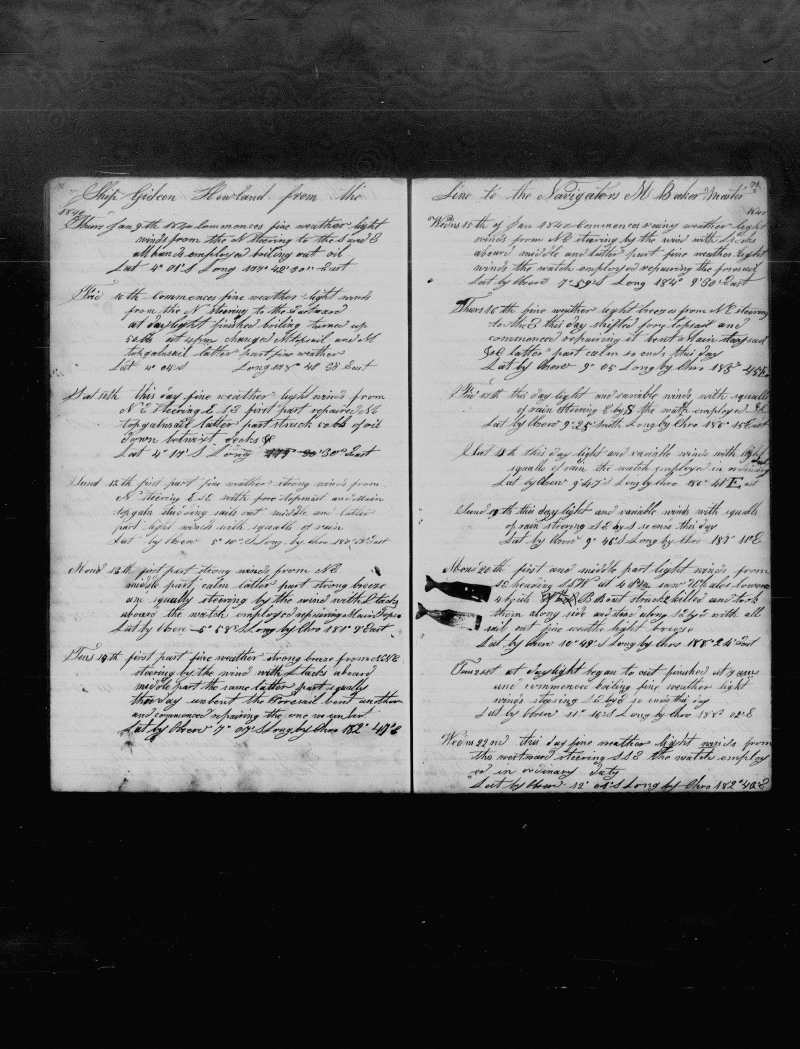 Ship Gideon Howland from the
1840
Thurs Jan 9th 1840 Commences fine weather light
winds from the N Steering to the S and E
all hands employed boiling out oil
Lat 4° 01' S Long 177° 48' 30" East
Frid 10th Commences fine weather light winds
from the N Steering to the Eastward
at daylight finished boiling turned up
50 bb at 4 pm changed M topsail and M
topgalnsail latter part fine weather
Lat 4° 04' S Long 178° 48 23 East
Sat 11th this day fine weather light winds from
N E Steering E S first part repaired M
topgalnsail latter part struck 50 bb of oil
down betwixt decks
Lat 4° 12' S Long 30' East
Sund 12th first part fine weather strong winds from
N steering E S E with fore topmast and Main
topgaln studding sails out middle and latter
part light winds with squalls of rain
Lat by Obsv 5° 10" S Long by Chro East
Mond 13th first part strong winds from N E
middle part calm latter part strong breeze
and squally steering by the wind with L tacks
aboard the watch employed repairing Main Topsail
Lat by Obsv 5° 58' S Long by Chro 181° 9' East
Tues 14th first part fine weather strong breeze from
steering by the wind with L tacks aboard
middle part the same latter part squally
this day unbent the Foresail bent another
and commenced repairing the one we unbent
Lat by Obsv 7° 07' S Long by Chro 182° 47' E
Line to the Navigators M Baker Master
1840
Wedns 15th of Jan 1840 Commences rainy weather light
winds from N E stearing by the wind with L tacks
aboard middle and latter part fine weather light
winds the watch employed repairing the foresail
Lat by Obsv 7° 59' S Long 184° 9' 30" East
Thurs 16th fine weather light breezes from N E steering
to the E this day shifted fore topsail and
commenced repairing it bent Main staysail
latter part calm so ends this day
Lat by Obsv 9° 05 Long by Chro 185° 45 E
Frid 17th this day light and variable winds with squalls
of rain steering E by S the watch employed
Lat by Obsv 9° 25 South Long by Chro 185° 45 East
Sat 18th this day light and variable winds with light
squalls of rain the watch employed in ordinary
Lat by Obsv 9° 47' S Long by Chro 186° 48 East
Sund 19th this day light and variable winds with squalls
of rain steering S E by S so ends this day
Lat by Obsv 9° 46' S Long by Chro 187° 11' E
Mond 20th first and middle part light winds from
S E heading S S W at 4 PM saw Whales lowered
4 boats Boat struck 2 killed and took
them along side and steered along S by S with all
sail out fine weather light breeze
Lat by Obsv 10° 49' S Long by Chro 188° 24' East
Tues 21st at daylight began to cut finished at 9 am
and commenced boiling fine weather light
winds stearing S by S so ends this day
Lat by Obsv 11° 16' S Long by Chro 183° 02' E
Wedns 22nd this day fine weather light winds from
the westward steering S S E the watch employ
ed in ordinary duty
Lat by Obsv 12° 01' S Long by Chro 182° 40' E